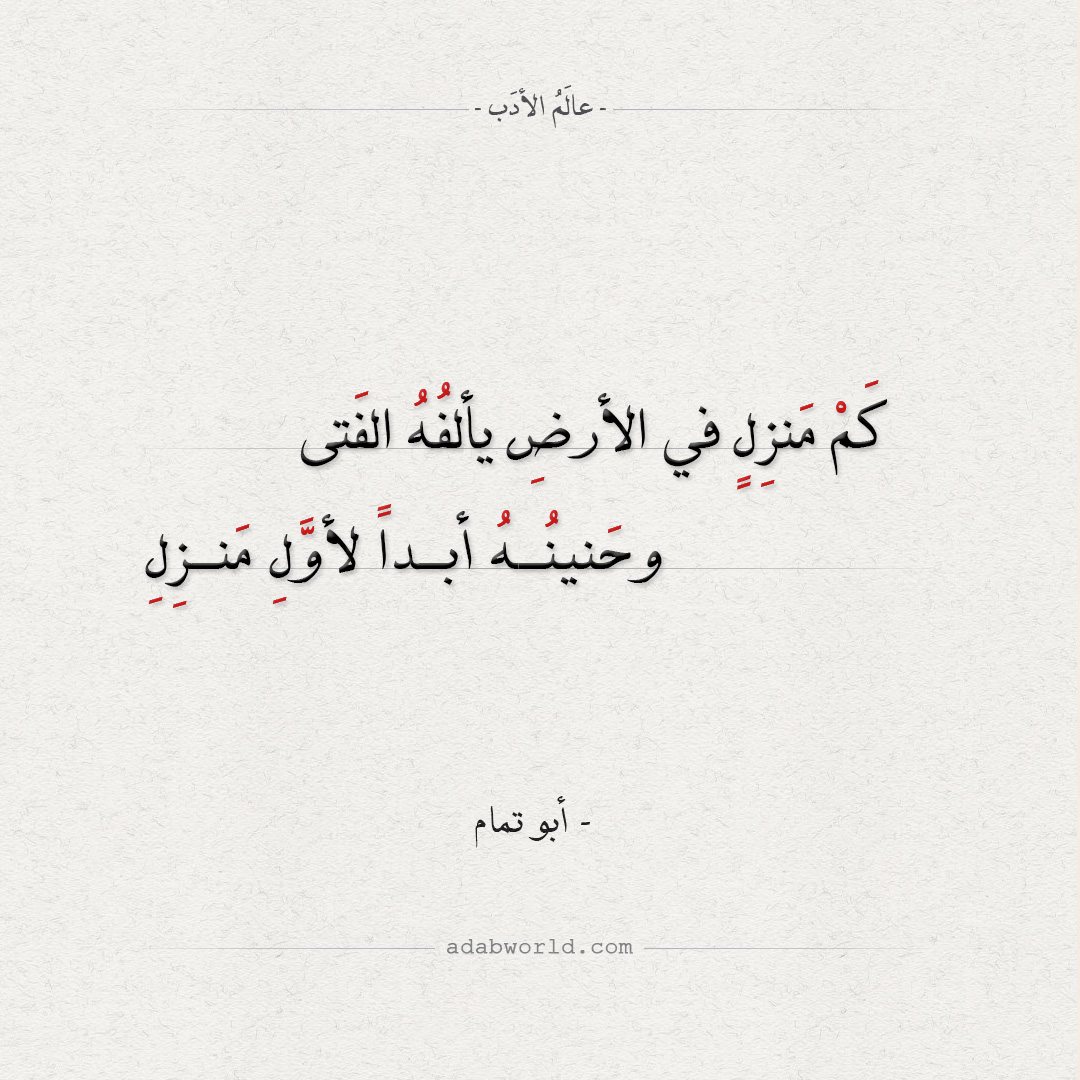 - عالَمُ الأدَب -
كَمْ مَنزِلٍ في الأرضِ يألفُهُ الفَتى
وحَنينُـــهُ أبـــداً لأوَّلِ مَنـــزِلِ
- أبو تمام
adabworld.com